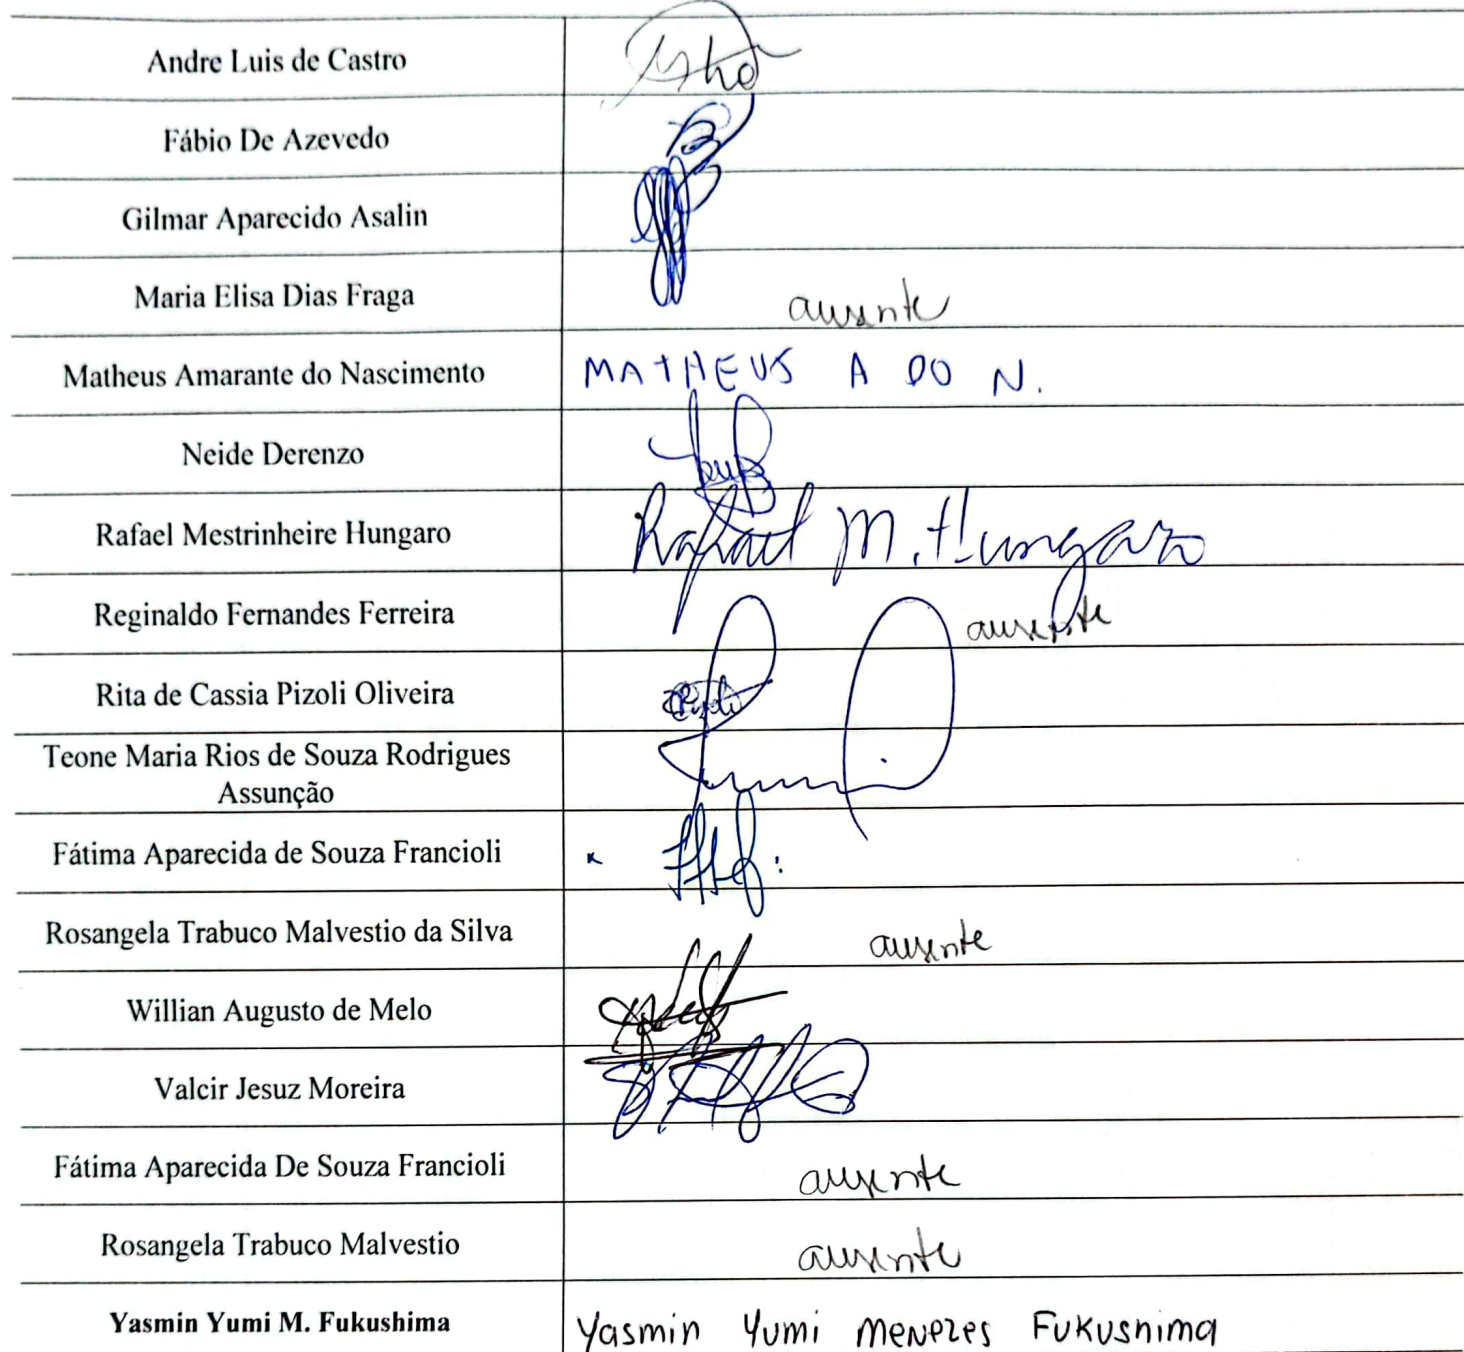 Andre Luis de Castro
Fábio De Azevedo
Gilmar Aparecido Asalin
Maria Elisa Dias Fraga ausente
Matheus Amarante do Nascimento MATHEUS A DO N.
Neide Derenzo
Rafael Mestrinheire Hungaro Rafael M. Hungaro
Reginaldo Fernandes Ferreira ausente
Rita de Cassia Pizoli Oliveira
Teone Maria Rios de Souza Rodrigues
Assunção
Fátima Aparecida de Souza Francioli
Rosangela Trabuco Malvestio da Silva ausente
Willian Augusto de Melo
Valcir Jesuz Moreira
Fátima Aparecida De Souza Francioli ausente
Rosangela Trabuco Malvestio ausente
Yasmin Yumi M. Fukushima Yasmin Yumi Menezes Fukushima